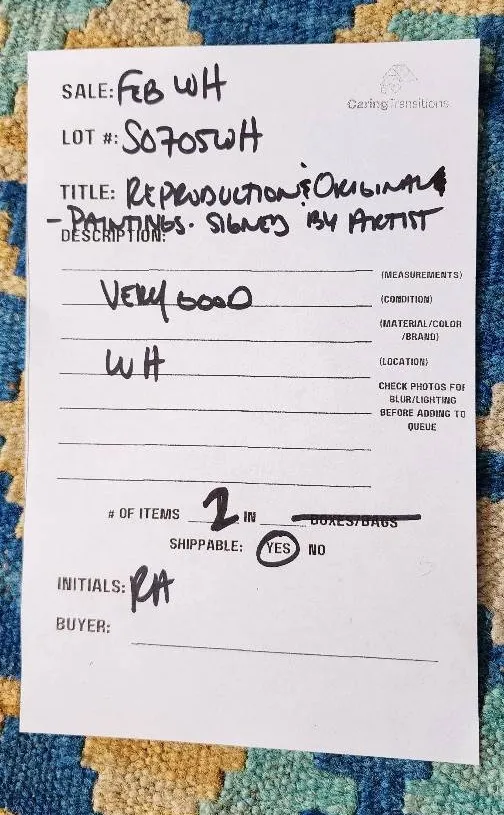 SALE: FEB WH
CaringTransitions
LOT #: S0705WH
TITLE: REPRODUCTION & ORIGINAL
- PAINTINGS. SIGNED BY ARTIST
DESCRIPTION:
(MEASUREMENTS)
VERY GOOD (CONDITION)
(MATERIAL/COLOR
/BRAND)
WH (LOCATION)
CHECK PHOTOS FOR
BLUR/LIGHTING
BEFORE ADDING TO
QUEUE
# OF ITEMS 2 IN BOXES/BAGS
SHIPPABLE: YES NO
INITIALS: RH
BUYER: